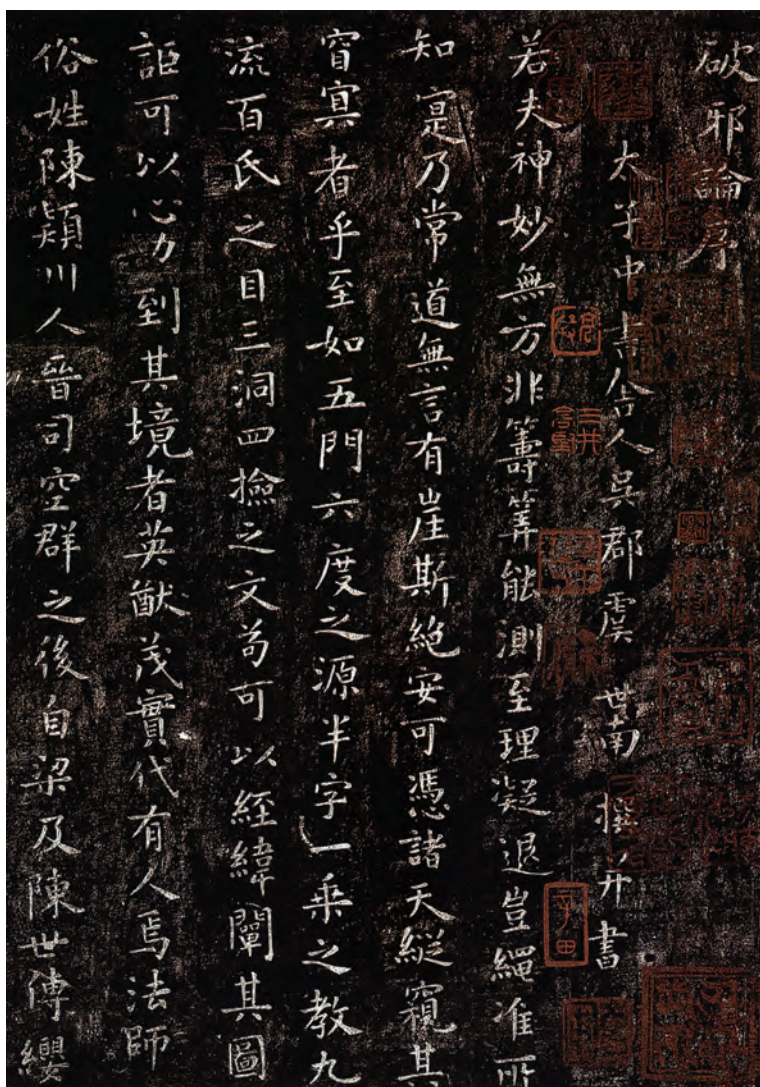 破邪論序
太子中書舍人吳郡虞世南撰并書
若夫神妙無方非籌筭能測至理凝退豈繩准所
知寔乃常道無言有崖斯絶安可憑諸天縱窺其
窅寘者乎至如五門六度之源半字一乘之教九
流百氏之目三洞四撿之文苟可以經緯闡其圖
詎可以心力到其境者英猷茂實代有人焉法師
俗姓陳潁川人晉司空群之後自梁及陳世傳纓
辛田